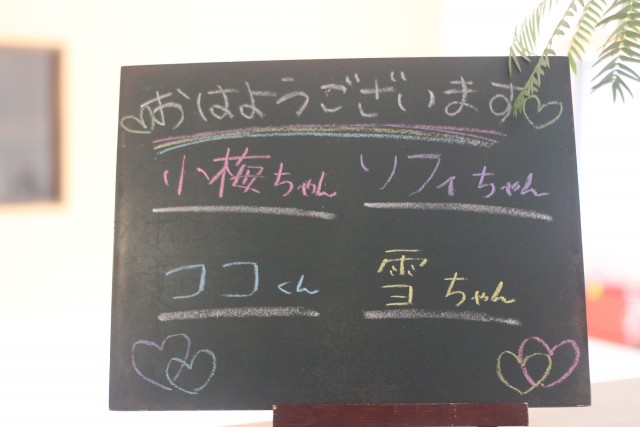 おはようございます
小梅ちゃん ソフィちゃん
ココくん 雪ちゃん